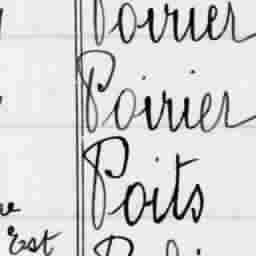 Poirier
Poirier
Poits
Est